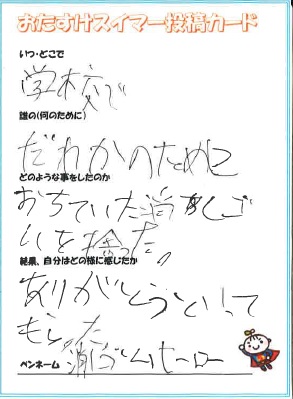 おたすけスイマー投稿カード
いつ・どこで
学校で
誰の(何のために)
だれかのために
どのような事をしたのか
おちていた消しゴ
ムを拾った。
結果、自分はどの様に感じたか
ありがとうといって
もらった
ペンネーム 消しゴムヒーロー